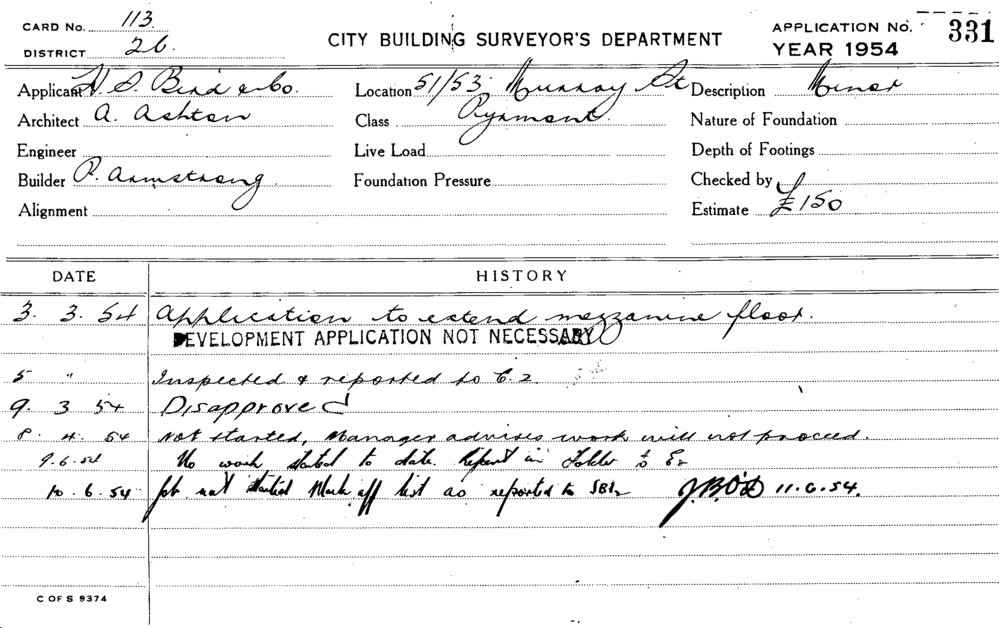 CARD No. 113
DISTRICT 26.
CITY BUILDING SURVEYOR'S DEPARTMENT
APPLICATION No. 331
YEAR 1954
Applicant H. S. Bird & Co. Location 51/53 Murray St Description Minor
Architect A. Ashton Class Pyrmont. Nature of Foundation
Engineer Live Load Depth of Footings
Builder P. Armstrong Foundation Pressure Checked by
Alignment Estimate £150
DATE HISTORY
3. 3. 54 Application to extend mezzanine floor.
DEVELOPMENT APPLICATION NOT NECESSARY
5 " Inspected & reported to C.2.
9. 3 54 Disapproved
8. 4. 54 Not started, Manager advises work will not proceed.
9.6.54 No work started to date. Report in Folder to
10.6.54 Job not started Mark off list as reported to 11.6.54.
C OF S 9374